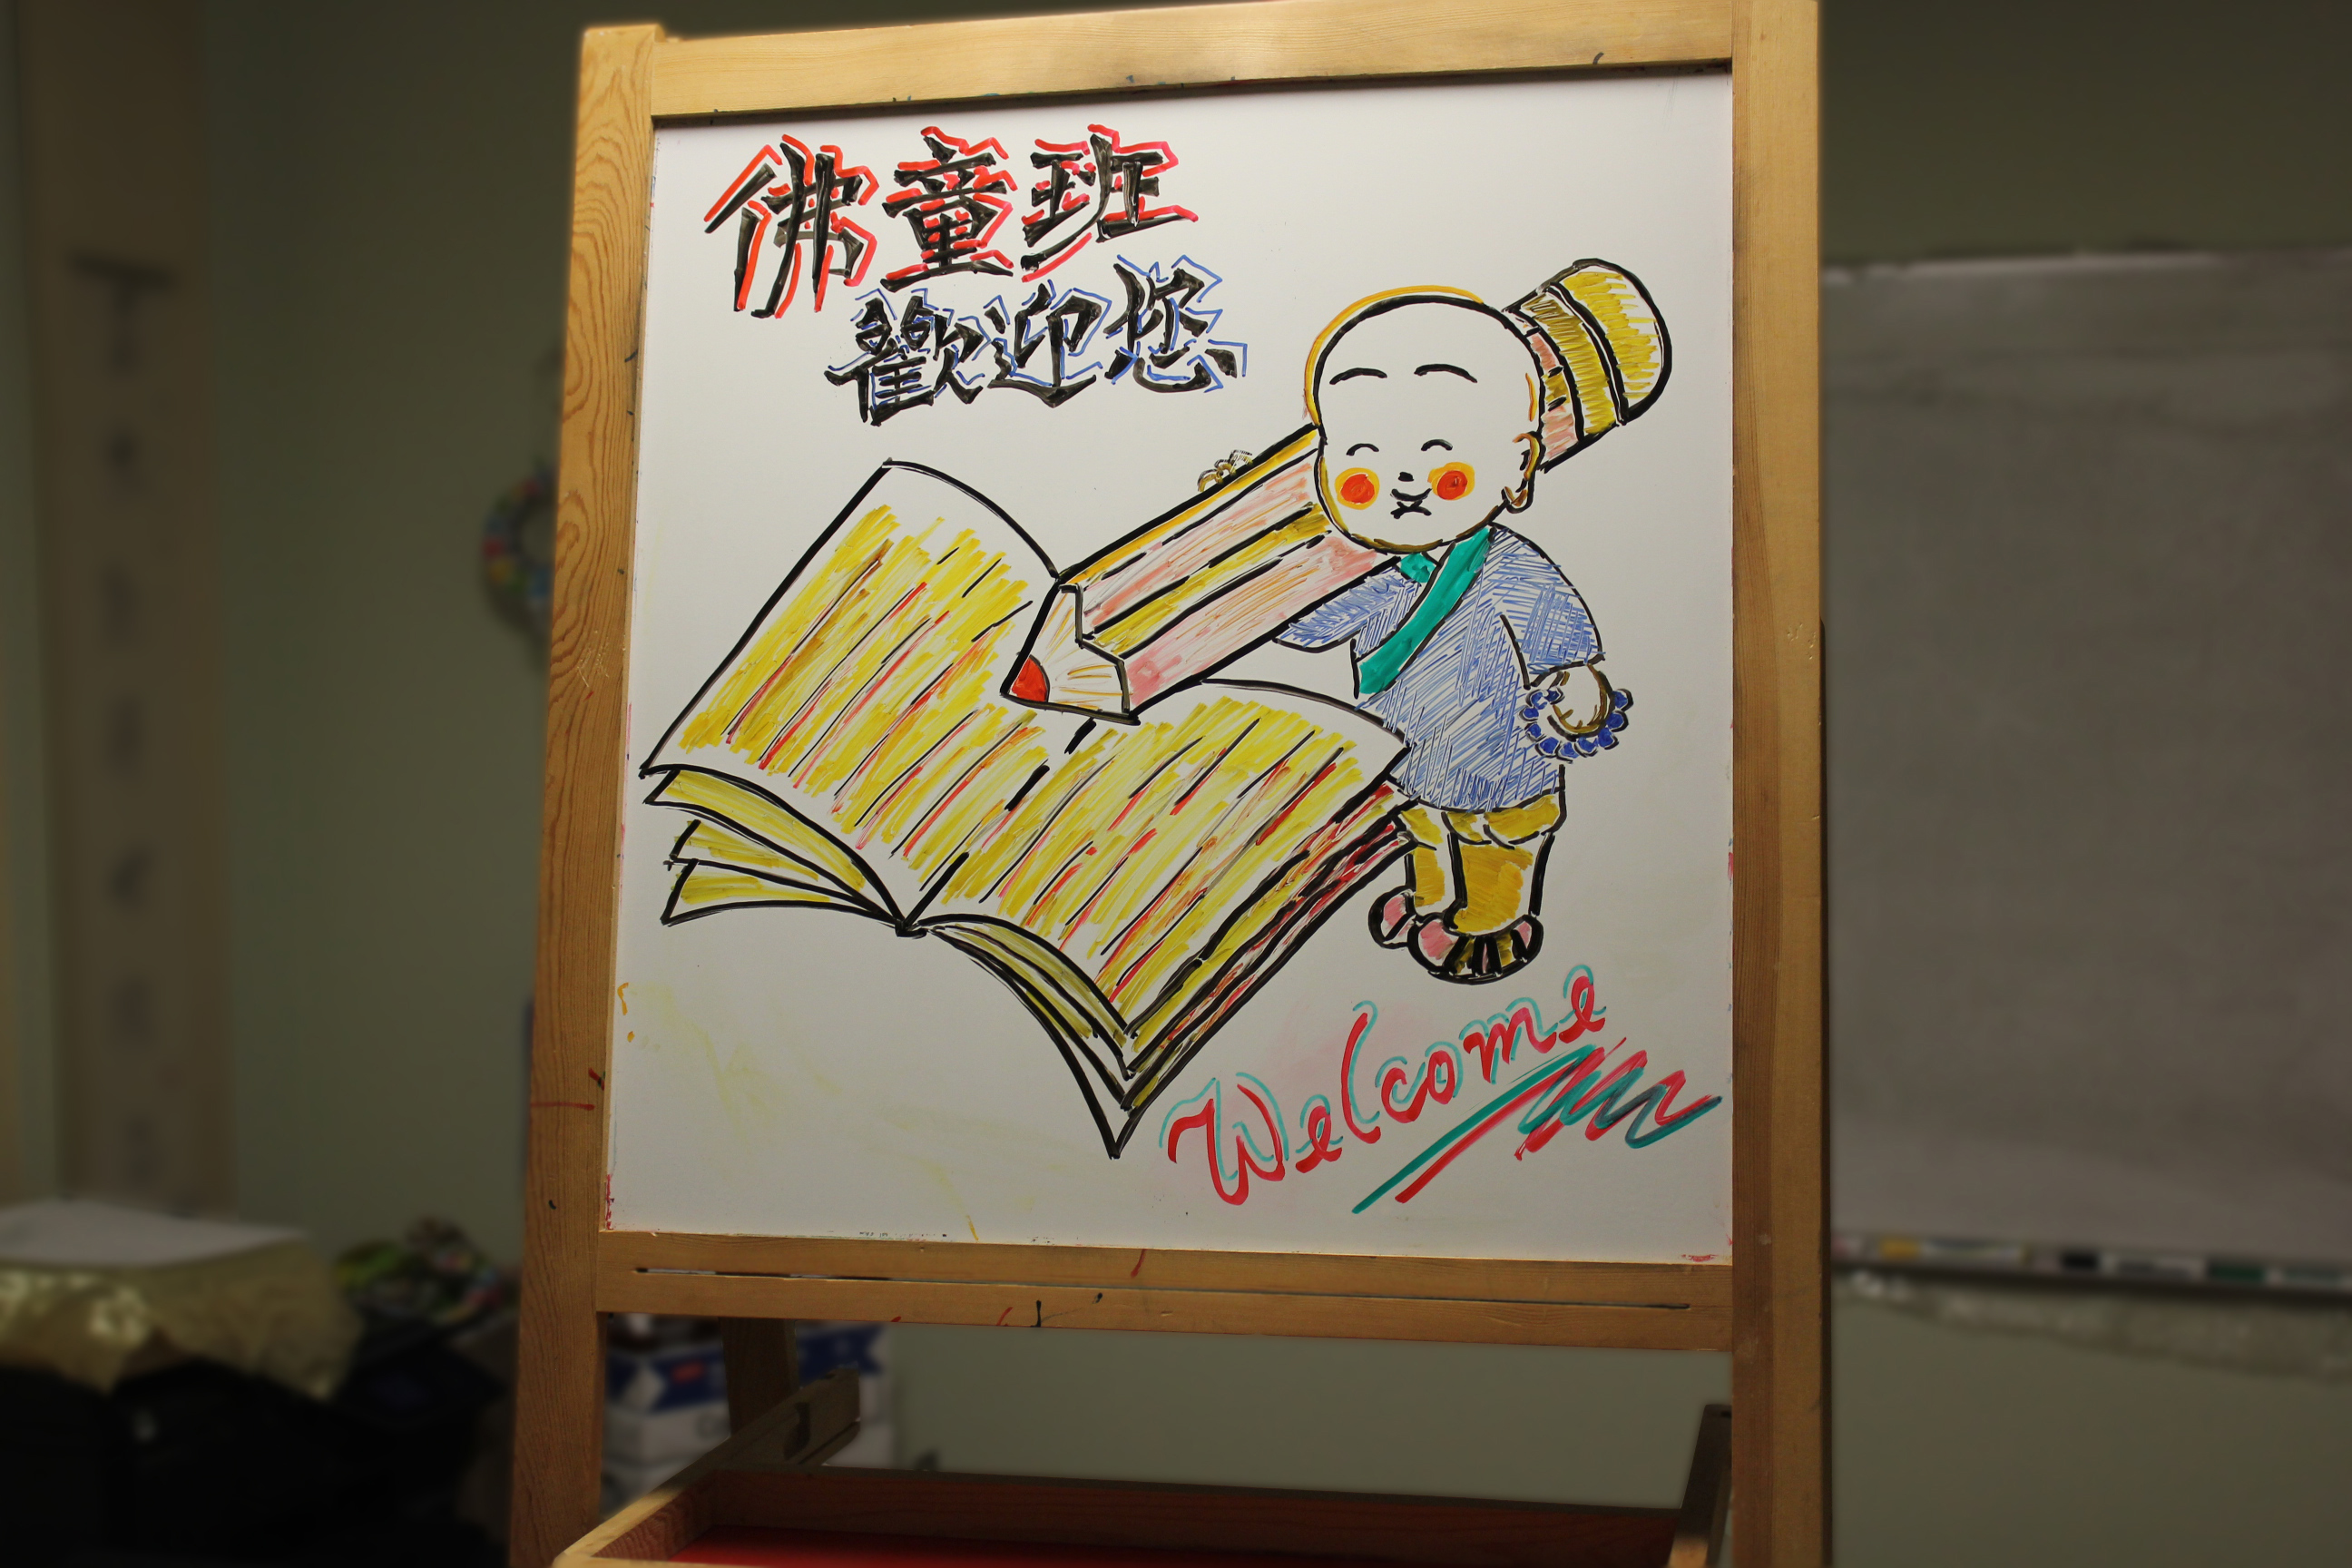 佛童班
歡迎您
Welcome